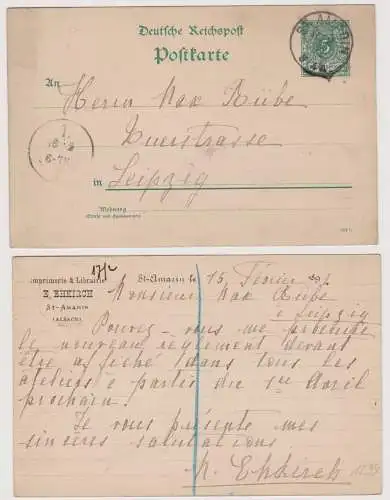 Deutsche Reichspost
Postkarte
ST. AMARIN
5
An
Herrn Max Rübe
Querstrasse
in Leipzig
Wohnung
(Straße und Hausnummer)
Imprimerie & Librairie
E. EHKIRCH
St-Amarin
(ALSACE)
St-Amarin le 15 Février
Monsieur Max Rübe
à Leipzig
Pouvez-vous me
le nouveau règlement devant
être affiché dans tous les
ateliers à partir du 1er Avril
prochain?
Je vous présente mes
sincères salutations
Ehkirch